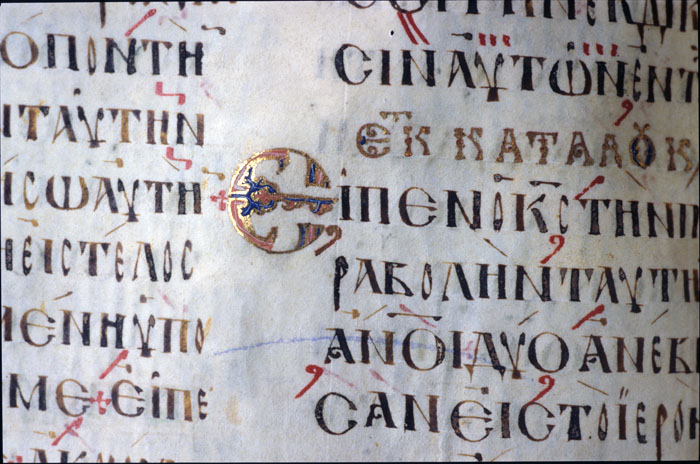 ΟΠΟΝΤΗ
ΙΤΑΥΤΗΝ
ΙϹΩΑΥΤΗ
ΗΕΙϹΤΕΛΟϹ
ΜΕΝΗΥΠΟ
ΜΕ+ΕΙΠΕ
ϹΙΝΑΥΤΩΝΕΝΤ
ΚΑΤΑΛΟΥΚΑ
ΕΙΠΕΝΟΚϹΤΗΝΠ
ΡΑΒΟΛΗΝΤΑΥΤΗ
ΑΝΟΙΔΥΟΑΝΕΒ
ϹΑΝΕΙϹΤΟΪΕΡΟΝ